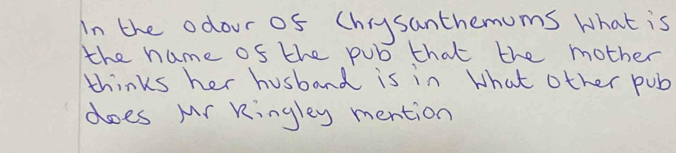 In the odour of Chrysanthemums What is
the name of the pub that the mother
thinks her husband is in What other pub
does Mr Ringley mention